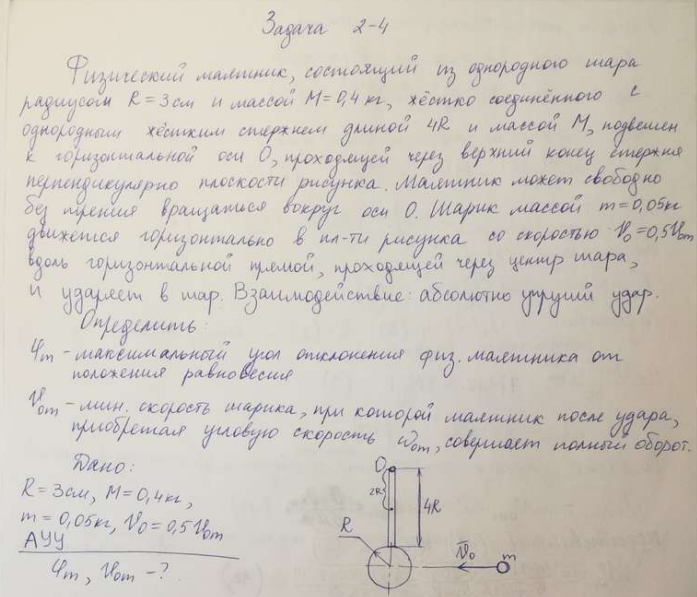 Задача 2-4
Физический маятник, состоящий из однородного шара
радиусом R = 3 см и массой M = 0,4 кг, жёстко соединённого с
однородным жёстким стержнем длиной 4R и массой M, подвешен
к горизонтальной оси O, проходящей через верхний конец стержня
перпендикулярно плоскости рисунка. Маятник может свободно
без трения вращаться вокруг оси O. Шарик массой m = 0,05 кг
движется горизонтально в пл-ти рисунка со скоростью V₀ = 0,5V₀m
вдоль горизонтальной прямой, проходящей через центр шара,
и ударяет в шар. Взаимодействие: абсолютно упругий удар.
Определить:
φm - максимальный угол отклонения физ. маятника от
положения равновесия
V₀m - мин. скорость шарика, при которой маятник после удара,
приобретая угловую скорость ω₀m, совершает полный оборот.
Дано:
R = 3 см, M = 0,4 кг,
m = 0,05 кг, V₀ = 0,5V₀m
АУУ
φm, V₀m - ?
O
2R
4R
R
V̄₀
m